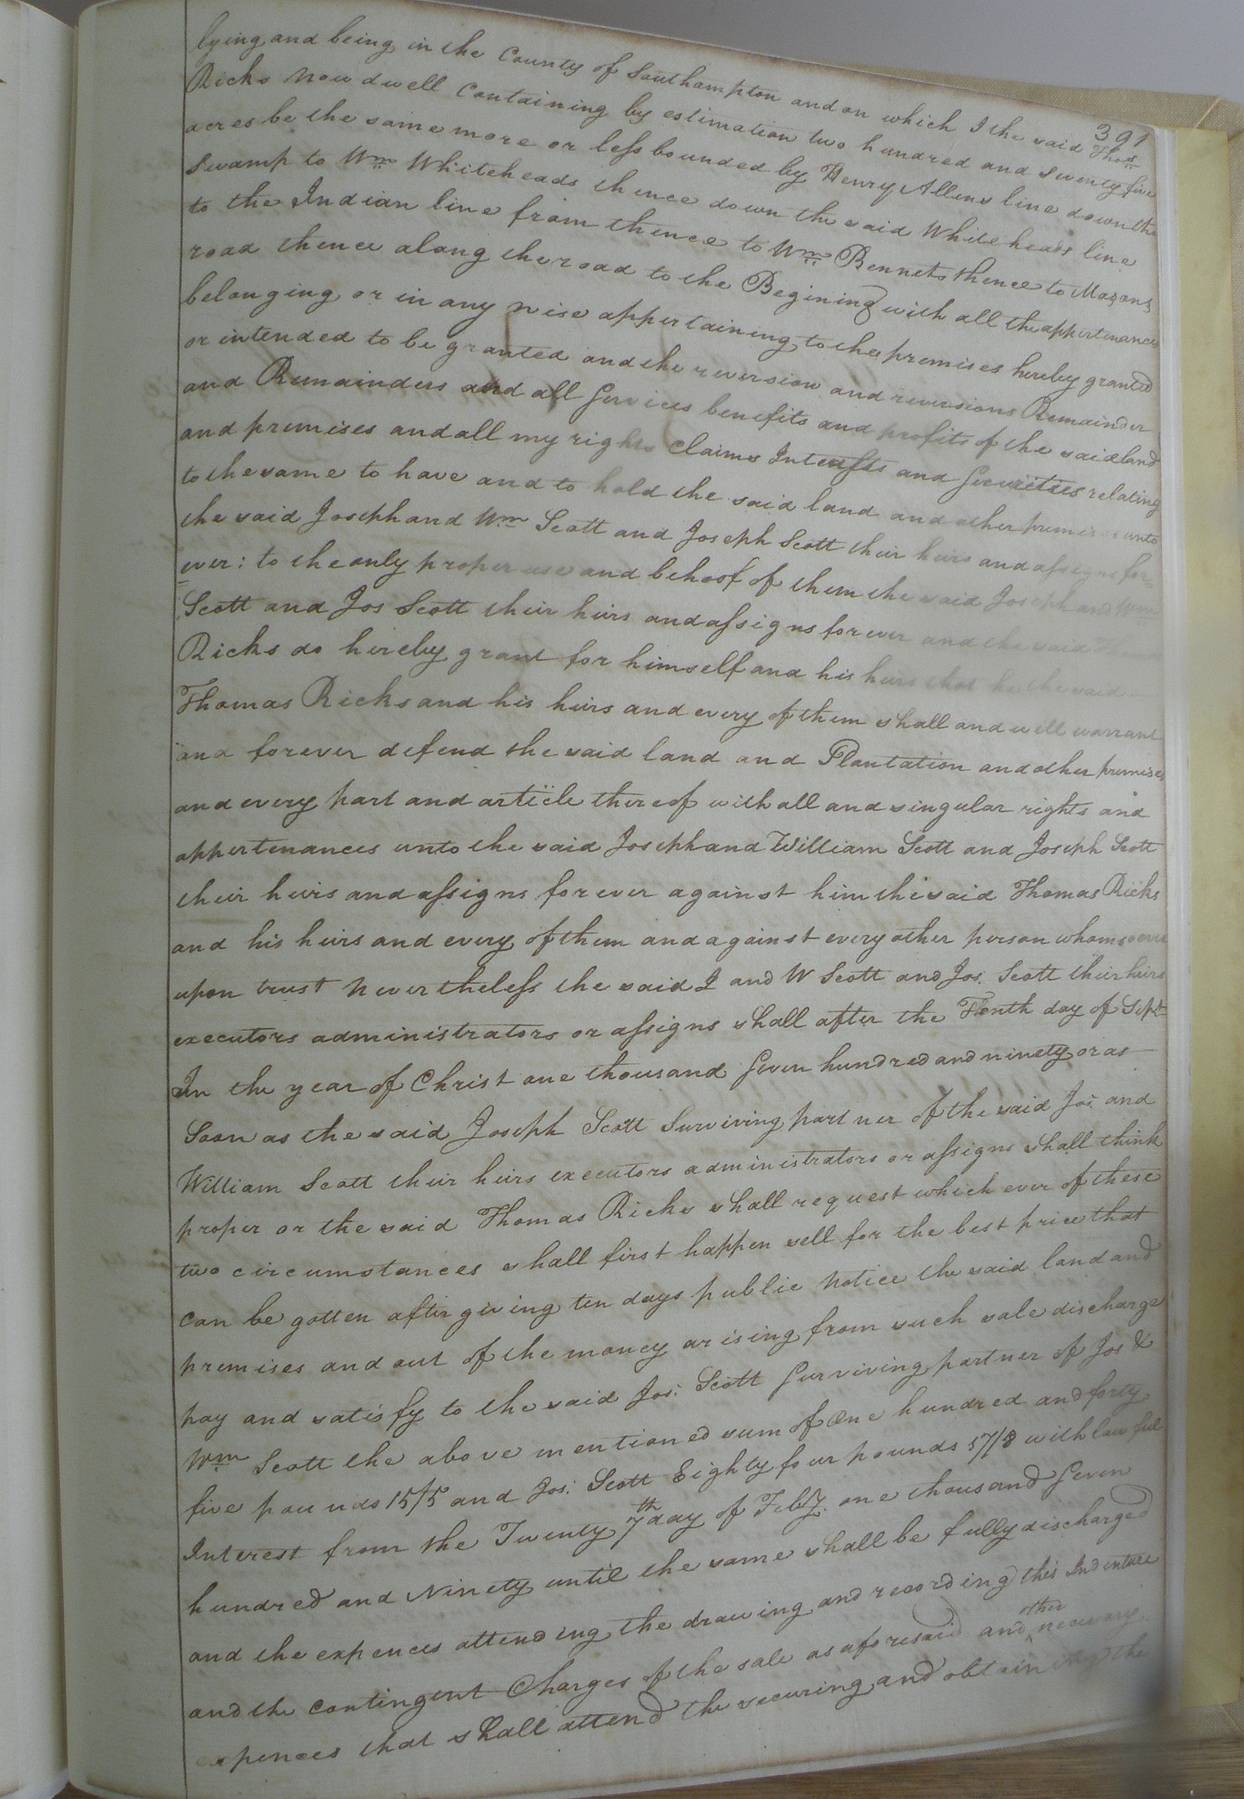 391
lying and being in the County of Southampton and on which I the said Thos
Ricks now dwell Containing by estimation two hundred and Seventy five
acres be the same more or less bounded by Henry Allens line down the
Swamp to Wm Whiteheads thence down the said Whiteheads line
to the Indian line from thence to Wm Bennets thence to Masons
road thence along the road to the Begining with all the appertenances
belonging or in any wise appertaining to the premises hereby granted
or intended to be granted and the reversion and reversions Remainder
and Remainders and all Services benefits and profits of the said land
and premises and all my rights Claims Interests and Securities relating
to the same to have and to hold the said land and other premises unto
the said Joseph and Wm Scott and Joseph Scott their heirs and assigns for
ever: to the only proper use and behoof of them the said Joseph and Wm
Scott and Jos Scott their heirs and assigns forever and the said
Ricks do hereby grant for himself and his heirs that he the said
Thomas Ricks and his heirs and every of them shall and well warrant
and forever defend the said land and Plantation and other premises
and every part and article thereof with all and singular rights and
appertenances unto the said Joseph and William Scott and Joseph Scott
their heirs and assigns forever against him the said Thomas Ricks
and his heirs and every of them and against every other person whomsoever
upon trust nevertheless the said J and W Scott and Jos. Scott their heirs
executors administrators or assigns shall after the Tenth day of Sept
In the year of Christ one thousand Seven hundred and ninety or as
Soon as the said Joseph Scott Surviving partner of the said Jos and
William Scott their heirs executors administrators or assigns shall think
proper or the said Thomas Ricks shall request which ever of these
two circumstances shall first happen sell for the best price that
can be gotten after giving ten days public notice the said land and
premises and out of the money arising from such sale discharge
pay and satisfy to the said Jos: Scott Surviving partner of Jos &
Wm Scott the above mentioned sum of One hundred and forty
five pounds 15/5 and Jos: Scott Eighty four pounds 17/8 with lawful
Interest from the Twenty 7th day of Feby. one thousand Seven
hundred and Ninety until the same shall be fully discharged
and the expences attending the drawing and recording this Indenture
and the Contingent Charges of the sale as aforesaid and other necessary
expences that shall attend the securing and obtaining the